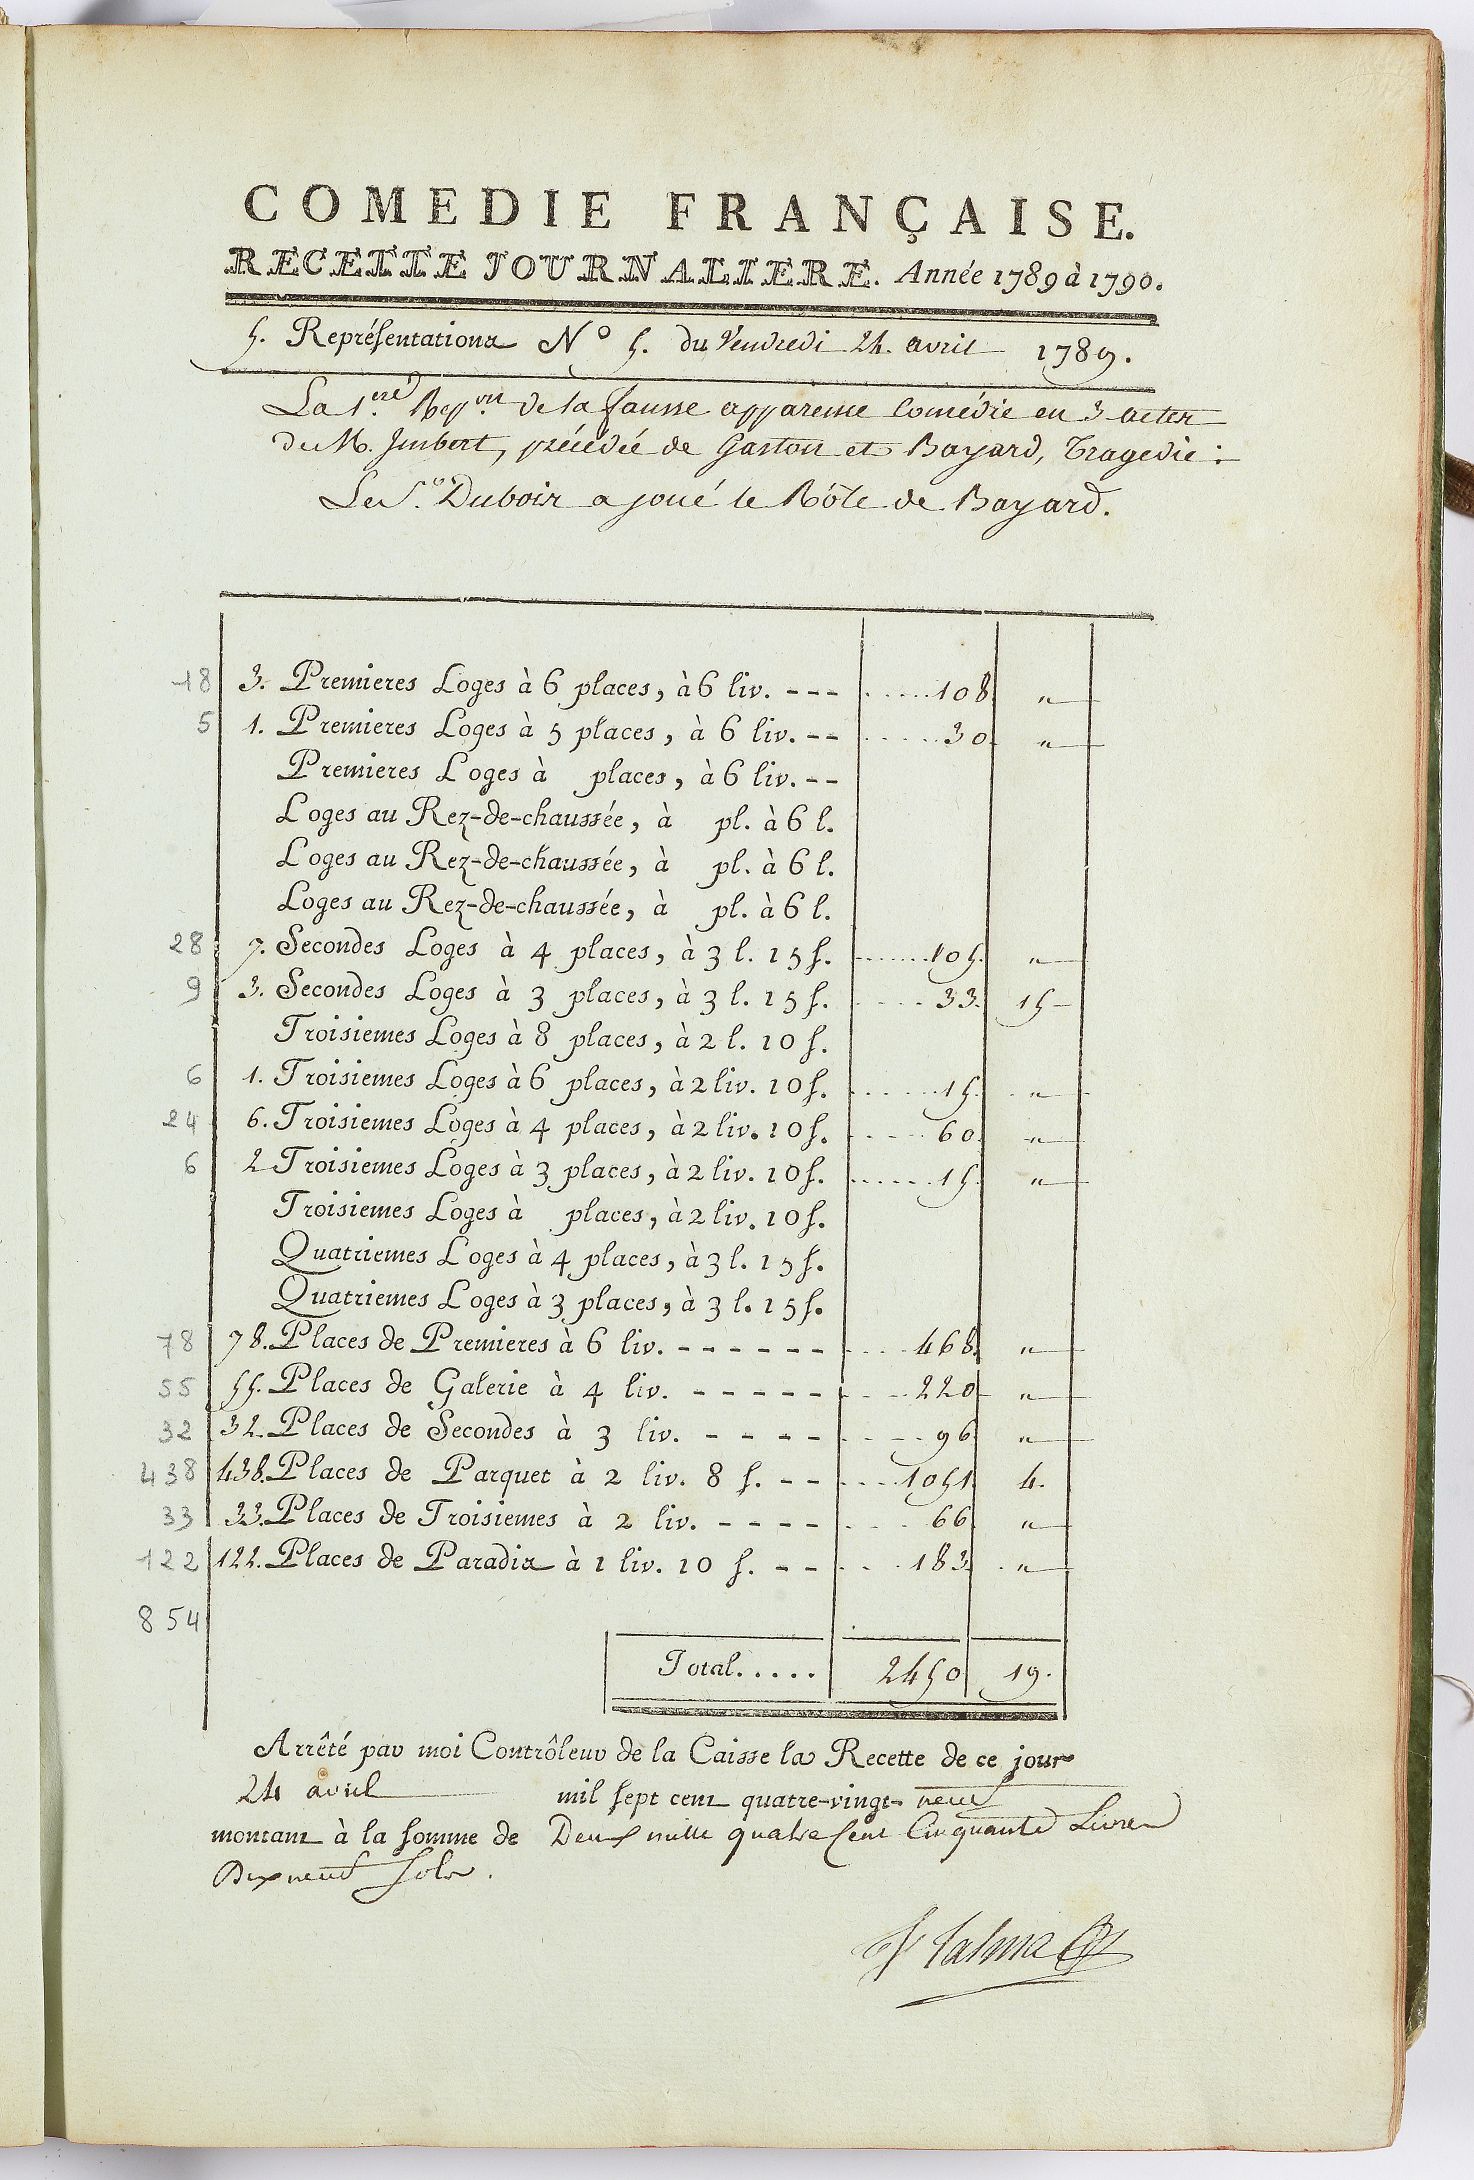 COMEDIE FRANÇAISE.
RECETTE JOURNALIERE. Année 1789 à 1790.
5. Représentations N° 5. du Vendredi 24. avril 1789.
La 1.ere Rep.on de la fausse apparence Comédie en 3 actes
de M. Imbert, précédée de Gaston et Bayard, Tragedie:
Le S.r Dubois a joué le Rôle de Bayard.
18 3. Premieres Loges à 6 places, à 6 liv. --- ..... 108. "
5 1. Premieres Loges à 5 places, à 6 liv. -- ..... 30. "
Premieres Loges à places, à 6 liv. --
Loges au Rez-de-chaussée, à pl. à 6 l.
Loges au Rez-de-chaussée, à pl. à 6 l.
Loges au Rez-de-chaussée, à pl. à 6 l.
28 7. Secondes Loges à 4 places, à 3 l. 15 s. ...... 105. "
9 3. Secondes Loges à 3 places, à 3 l. 15 s. ..... 33. 15
Troisiemes Loges à 8 places, à 2 l. 10 s.
6 1. Troisiemes Loges à 6 places, à 2 liv. 10 s. ...... 15. "
24 6. Troisiemes Loges à 4 places, à 2 liv. 10 s. ..... 60. "
6 2 Troisiemes Loges à 3 places, à 2 liv. 10 s. ...... 15. "
Troisiemes Loges à places, à 2 liv. 10 s.
Quatriemes Loges à 4 places, à 3 l. 15 s.
Quatriemes Loges à 3 places, à 3 l. 15 s.
78 78. Places de Premieres à 6 liv. ------ .... 468. "
55 55. Places de Galerie à 4 liv. ----- .... 220 "
32 32. Places de Secondes à 3 liv. ---- ..... 96 "
438 438. Places de Parquet à 2 liv. 8 s. -- .... 1051. 4.
33 33. Places de Troisiemes à 2 liv. ---- .... 66. "
122 122. Places de Paradis à 1 liv. 10 s. -- ... 183. "
854
Total..... 2450 19.
Arrêté par moi Contrôleur de la Caisse la Recette de ce jour
24 avril mil sept cent quatre-vingt-neuf
montant à la somme de Deux mille quatre Cent Cinquante Livres
Dix neuf sols.
Talma